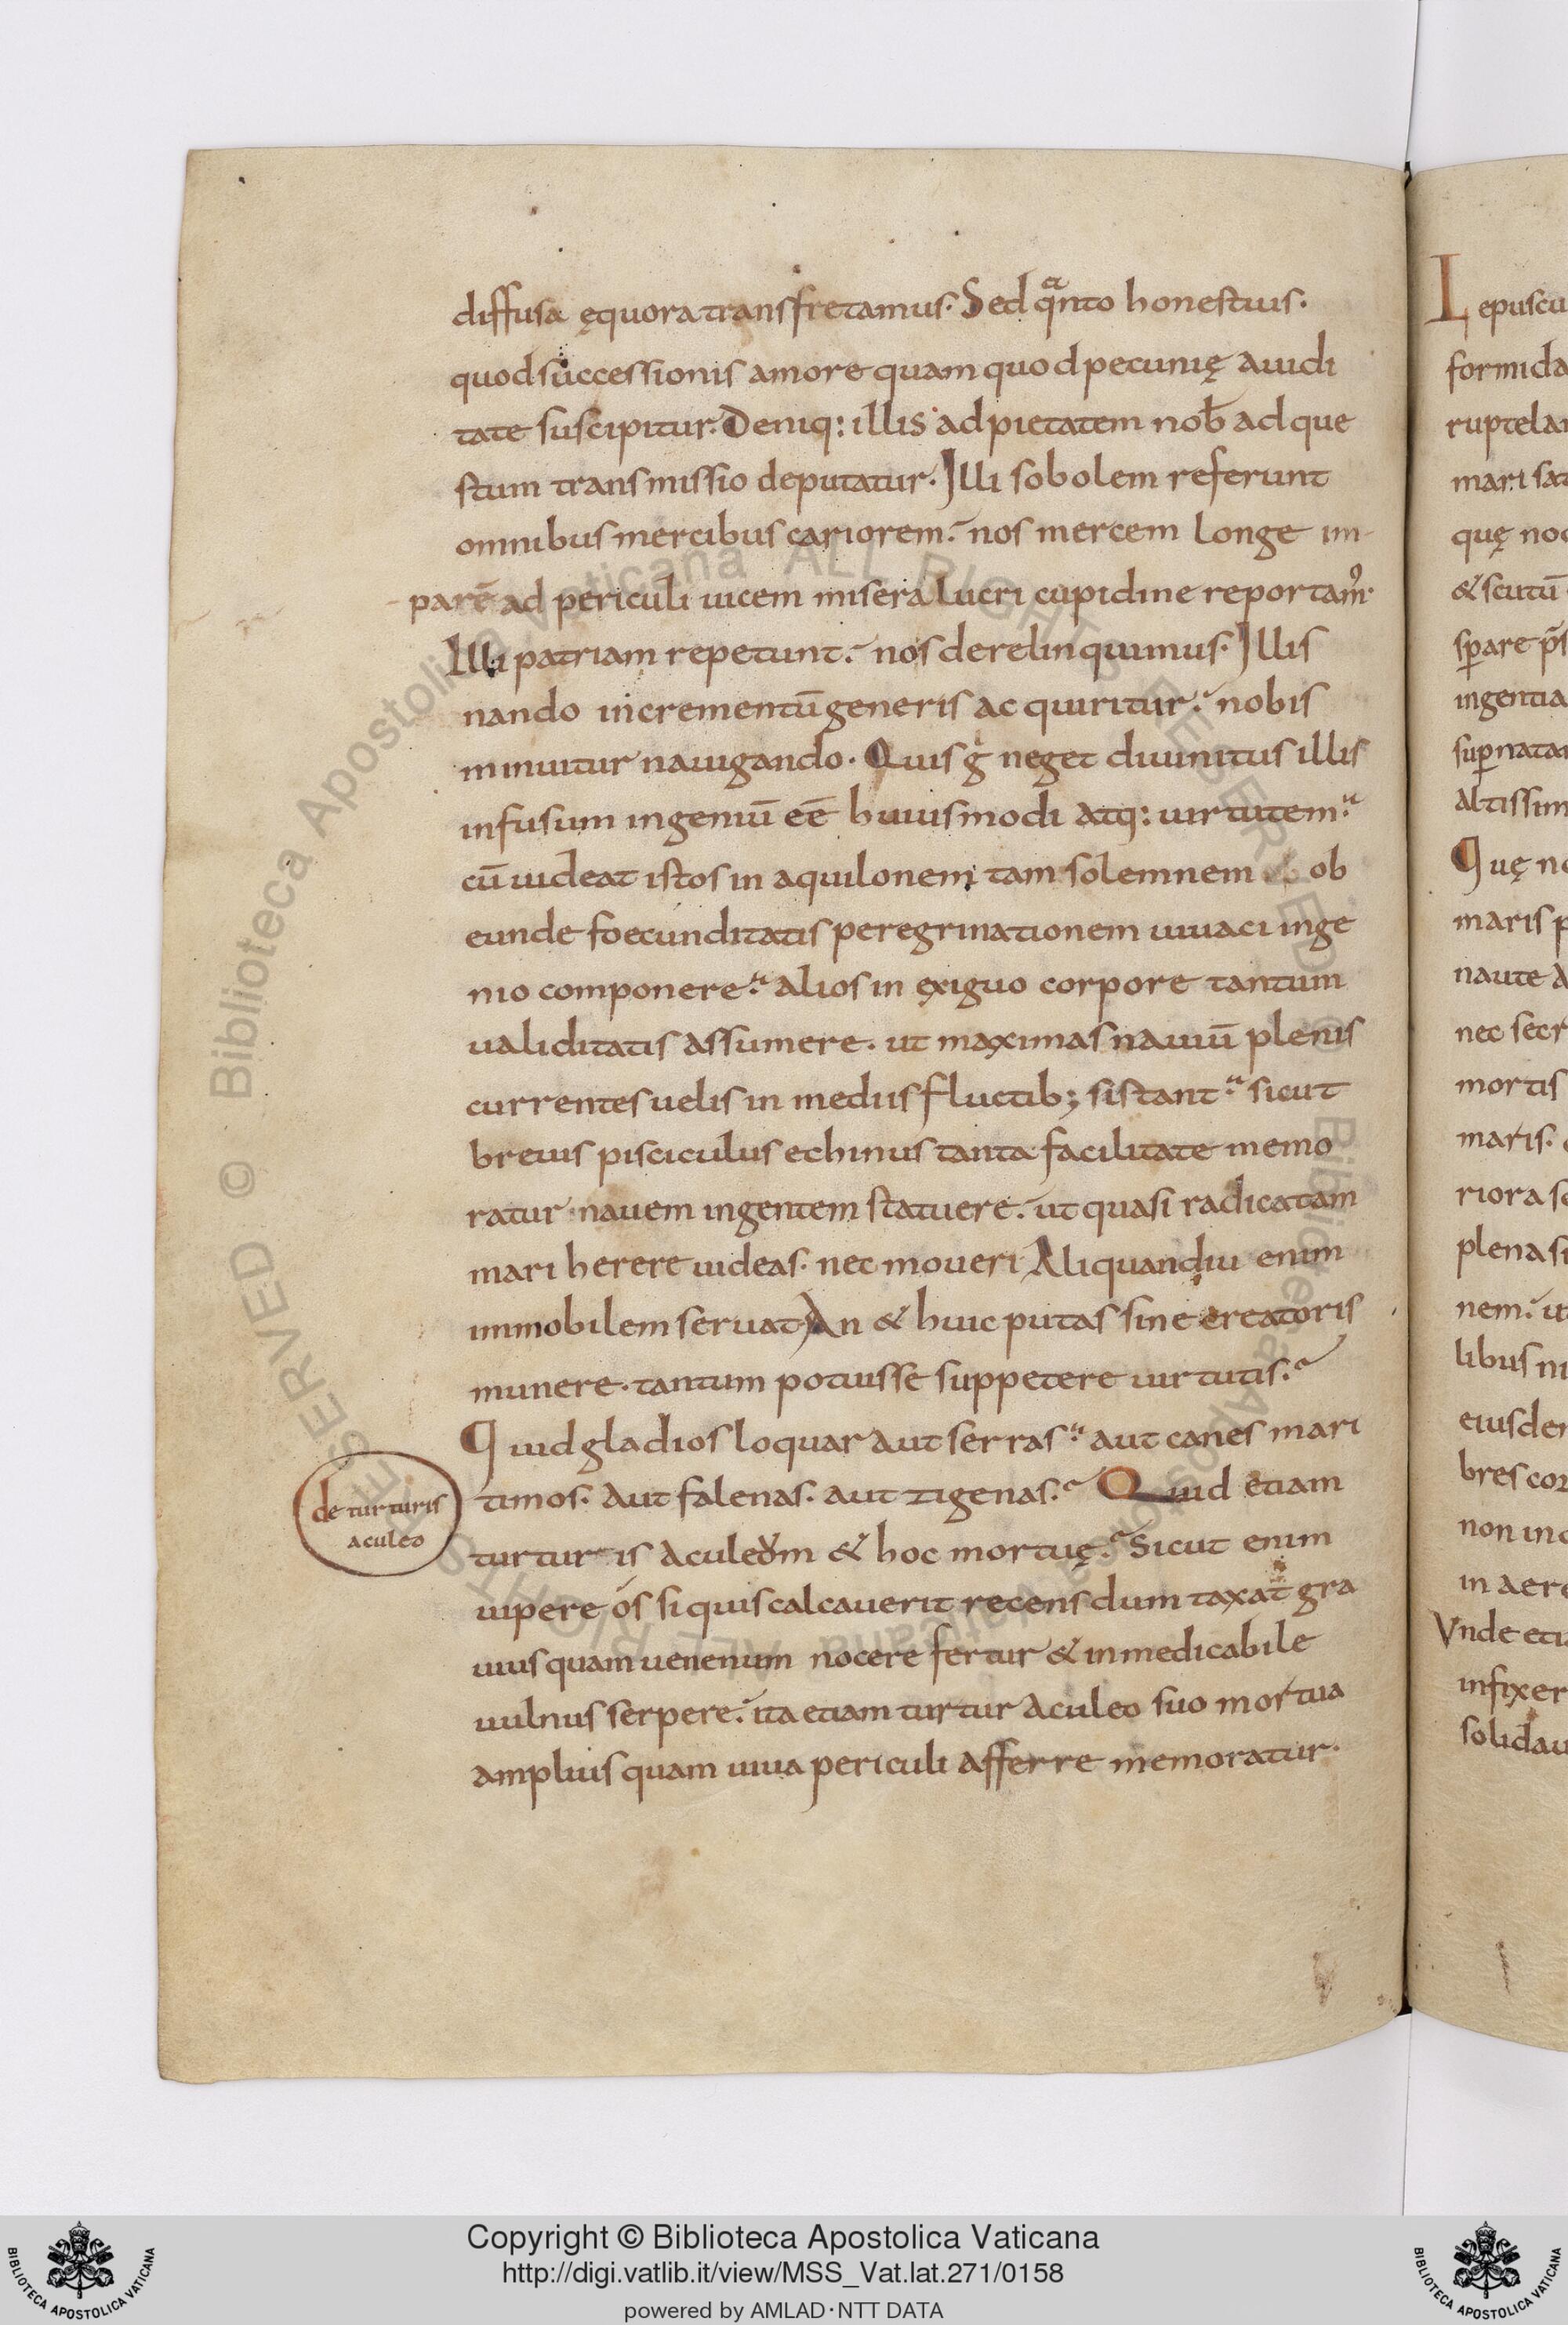 diffusa ęquora transfretamus. Sed qᵃnto honestius.
quod successionis amore quam quod pecunię auidi
tate suscipitur. Deniq: illis ad pietatem nob̄ ad que
stum transmissio deputatur. Illi sobolem referunt
omnibus mercibus cariorem. nos mercem longe im-
parē ad periculi uicem misera lucri cupidine reportam᾿.
Illi patriam repetunt. nos derelinquimus. Illis
nando incrementū generis acquiritur. nobis
minuitur nauigando. Quis gͥ neget diuinitus illis
infusum ingeniū eē huiusmodi atq: uirtutem.
cū uideat istos in aquilonem tam solemnem ob
eunde foecunditatis peregrinationem uiuaci inge
nio componere. alios in exiguo corpore tantum
ualiditatis assumere. ut maximas nauiū plenis
currentes uelis in mediis fluctib; sistant. sicut
breuis pisciculus echinus tanta facilitate memo
ratur nauem ingentem statuere. ut quasi radicatam
mari herere uideas. nec moueri. Aliquandiu enim
immobilem seruat. An & huic putas sine creatoris
munere. tantum potuisse suppetere uirtutis.
Quid gladios loquar aut serras. aut canes mari
timos. aut falenas. aut zigenas. Quid etiam
de turturis
aculeo
turturis aculeum & hoc mortuę. Sicut enim
uipere os si quis calcauerit recens dum taxat gra
uius quam uenenum nocere fertur & inmedicabile
uulnus serpere. ita etiam turtur aculeo suo mortua
amplius quam uiua periculi afferre memoratur.
Lepuscu
formida
ruptelam
mari sat
quę noc
& scutū
spare p̄s
ingentia
supnatan
altissim
Quę no
maris p
naute a
nec secr
mortis
maris.
riora se
plena si
nem. ut
libus ni
eiusdem
bres cor
non ino
in aere
Vnde etia
infixer
solidau
© Biblioteca Apostolica Vaticana ALL RIGHTS RESERVED
Copyright © Biblioteca Apostolica Vaticana
http://digi.vatlib.it/view/MSS_Vat.lat.271/0158
powered by AMLAD·NTT DATA
BIBLIOTECA APOSTOLICA VATICANA
BIBLIOTECA APOSTOLICA VATICANA